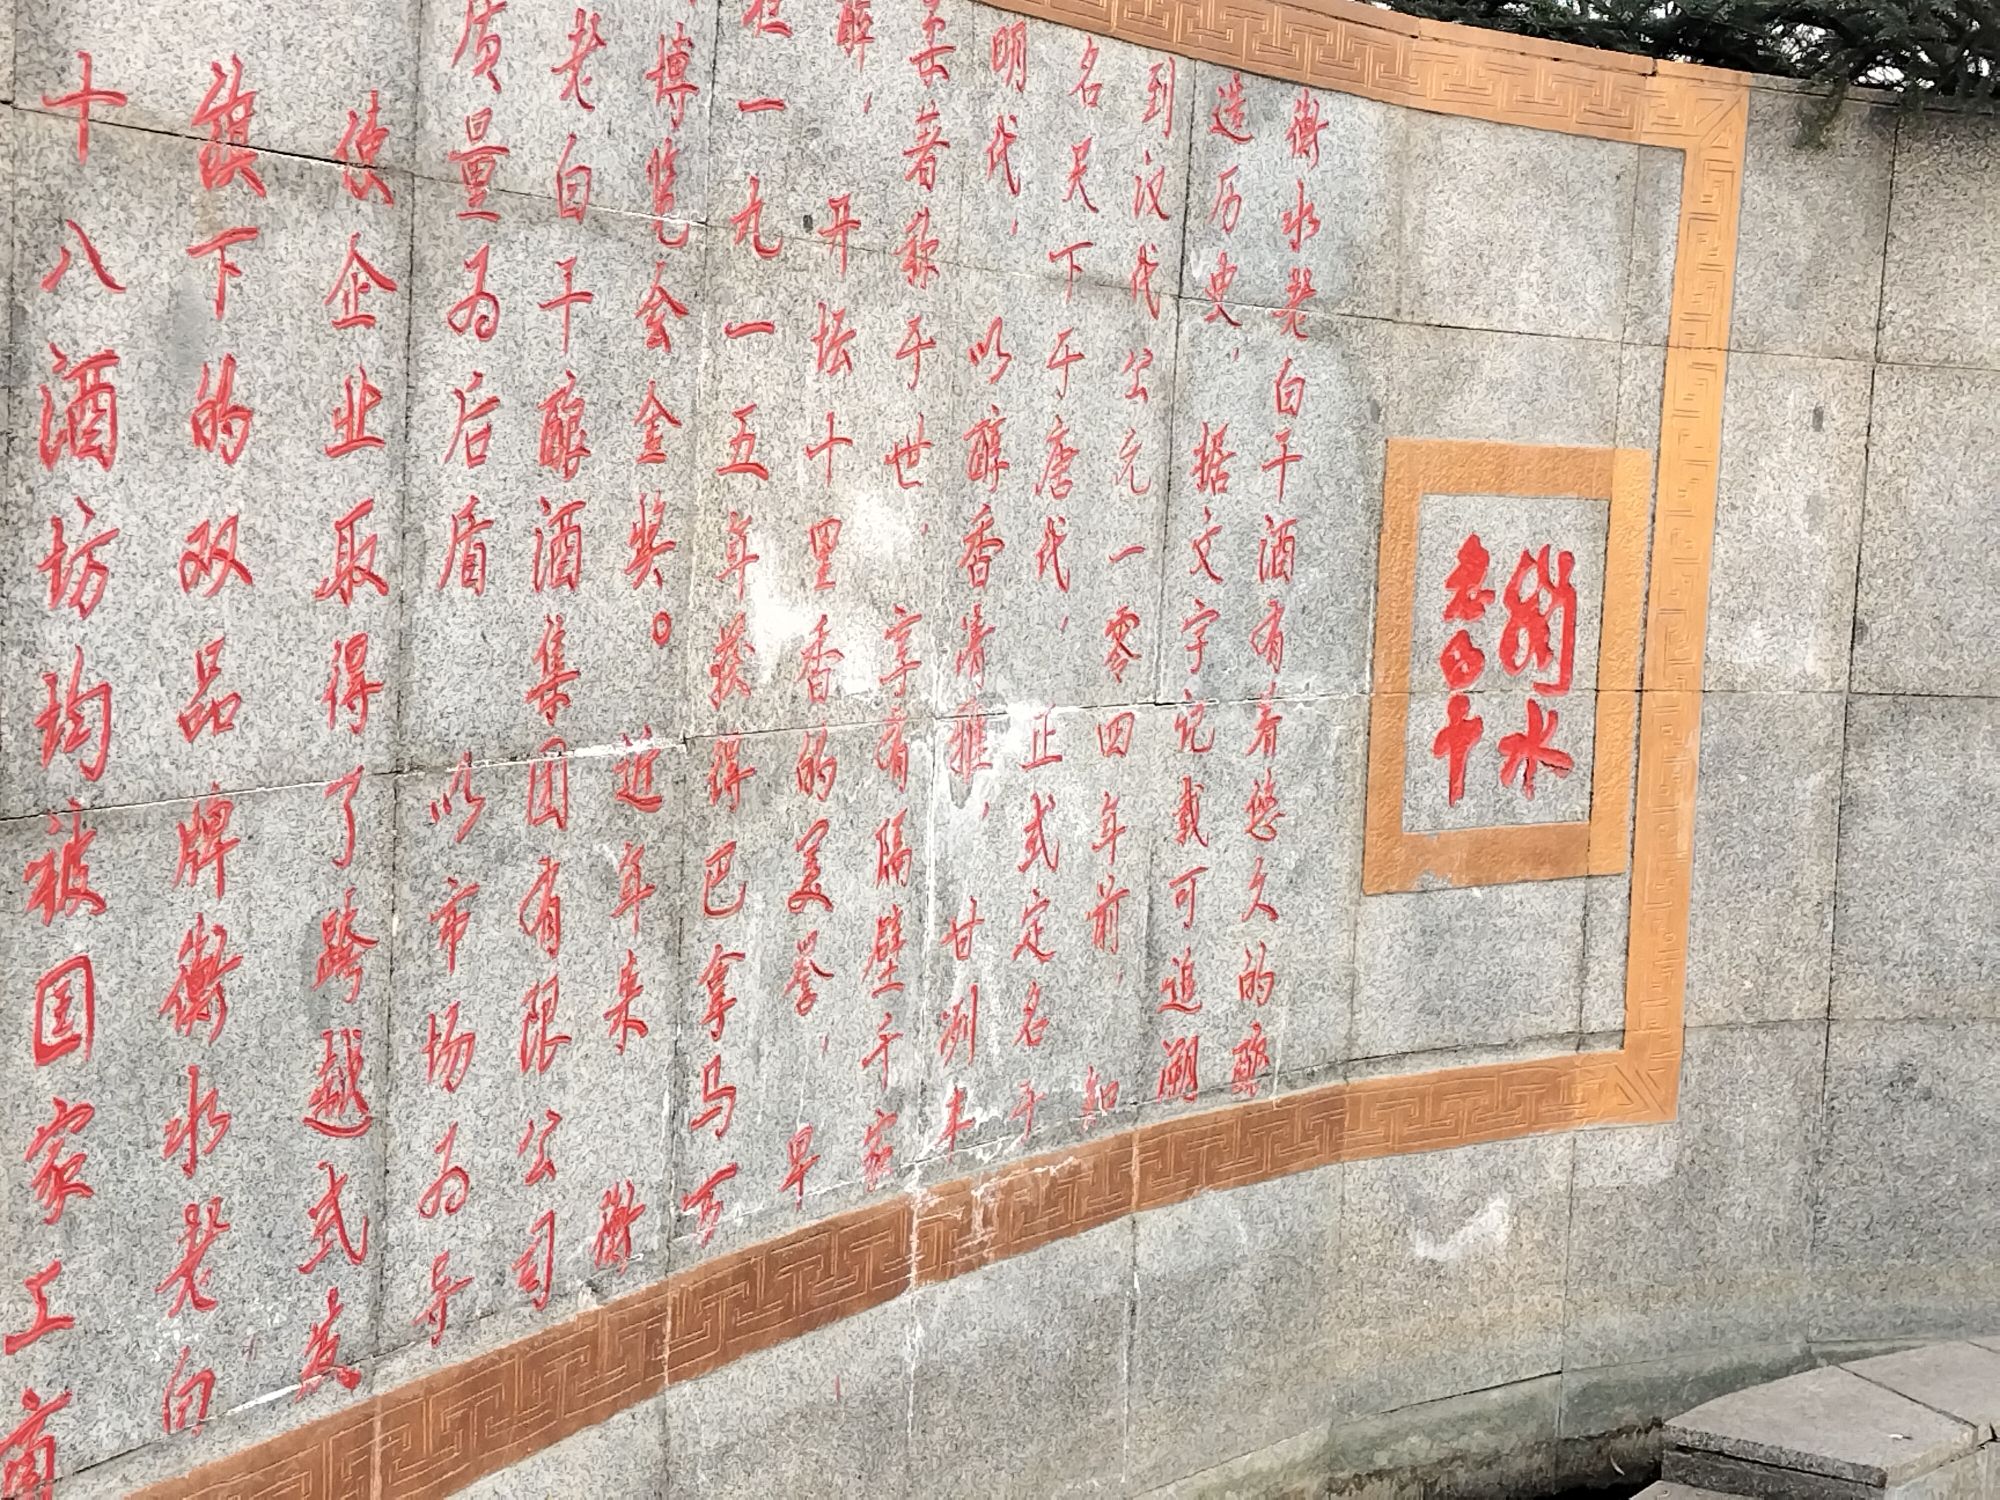 衡水
老白干
衡水老白干酒有着悠久的酿
造历史，据文字记载可追溯
到汉代公元一零四年前，知
名天下于唐代，正式定名于
明代，以醇香清雅，甘冽
著称于世，享有隔壁千家
醉，开坛十里香的美誉，早
在一九一五年获得巴拿马万
博览会金奖。近年来衡
老白干酿酒集团有限公司
质量为后盾以市场为导
使企业取得了跨越式发
旗下的双品牌衡水老白
十八酒坊均被国家工商